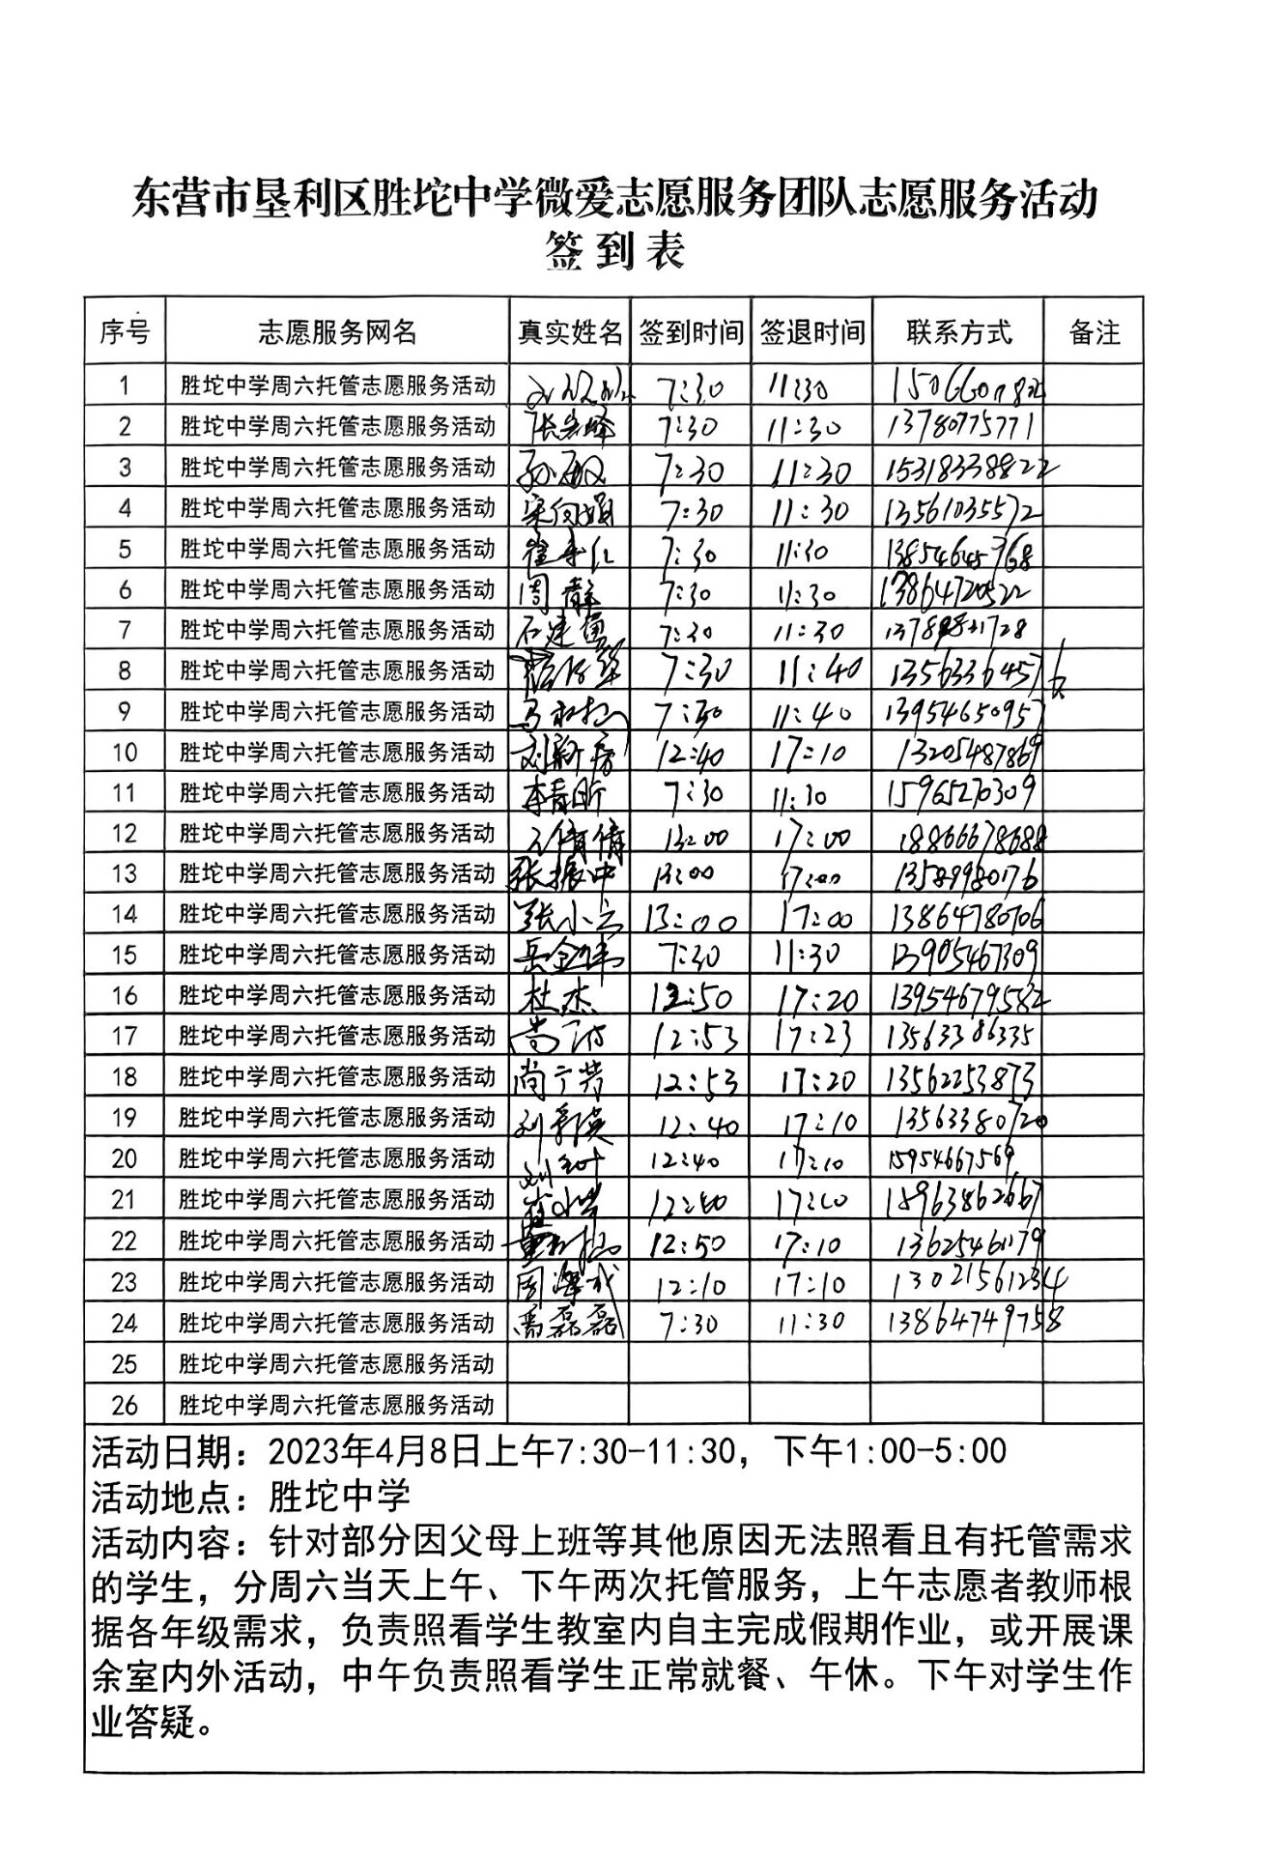 东营市垦利区胜坨中学微爱志愿服务团队志愿服务活动
签到表
序号 志愿服务网名 真实姓名 签到时间 签退时间 联系方式 备注
1 胜坨中学周六托管志愿服务活动 7:30 11:30
2 胜坨中学周六托管志愿服务活动 7:30 11:30 13780775771
3 胜坨中学周六托管志愿服务活动 孙敏 7:30 11:30 15318338822
4 胜坨中学周六托管志愿服务活动 宋向娟 7:30 11:30 13561035572
5 胜坨中学周六托管志愿服务活动 7:30 11:30 13854645768
6 胜坨中学周六托管志愿服务活动 周静 7:30 11:30 13864720522
7 胜坨中学周六托管志愿服务活动 7:30 11:30
8 胜坨中学周六托管志愿服务活动 7:30 11:40 13563364576
9 胜坨中学周六托管志愿服务活动 7:30 11:40 13954650957
10 胜坨中学周六托管志愿服务活动 刘新房 12:40 17:10 13205487869
11 胜坨中学周六托管志愿服务活动 李春昕 7:30 11:30 15965270309
12 胜坨中学周六托管志愿服务活动 王倩倩 13:00 17:00 18866678688
13 胜坨中学周六托管志愿服务活动 张振中 13:00 17:00 13589980176
14 胜坨中学周六托管志愿服务活动 张小立 13:00 17:00 13864780706
15 胜坨中学周六托管志愿服务活动 岳金伟 7:30 11:30 13905467309
16 胜坨中学周六托管志愿服务活动 杜杰 12:50 17:20 13954679582
17 胜坨中学周六托管志愿服务活动 12:53 17:23 13563386335
18 胜坨中学周六托管志愿服务活动 尚广芳 12:53 17:20 13562253873
19 胜坨中学周六托管志愿服务活动 刘新英 12:40 17:10 13563380720
20 胜坨中学周六托管志愿服务活动 12:40 17:10 15954667569
21 胜坨中学周六托管志愿服务活动 12:40 17:10 18963862667
22 胜坨中学周六托管志愿服务活动 12:50 17:10 13625461179
23 胜坨中学周六托管志愿服务活动 12:10 17:10 13021561234
24 胜坨中学周六托管志愿服务活动 禹磊磊 7:30 11:30 13864749758
25 胜坨中学周六托管志愿服务活动
26 胜坨中学周六托管志愿服务活动
活动日期：2023年4月8日上午7:30-11:30，下午1:00-5:00
活动地点：胜坨中学
活动内容：针对部分因父母上班等其他原因无法照看且有托管需求
的学生，分周六当天上午、下午两次托管服务，上午志愿者教师根
据各年级需求，负责照看学生教室内自主完成假期作业，或开展课
余室内外活动，中午负责照看学生正常就餐、午休。下午对学生作
业答疑。